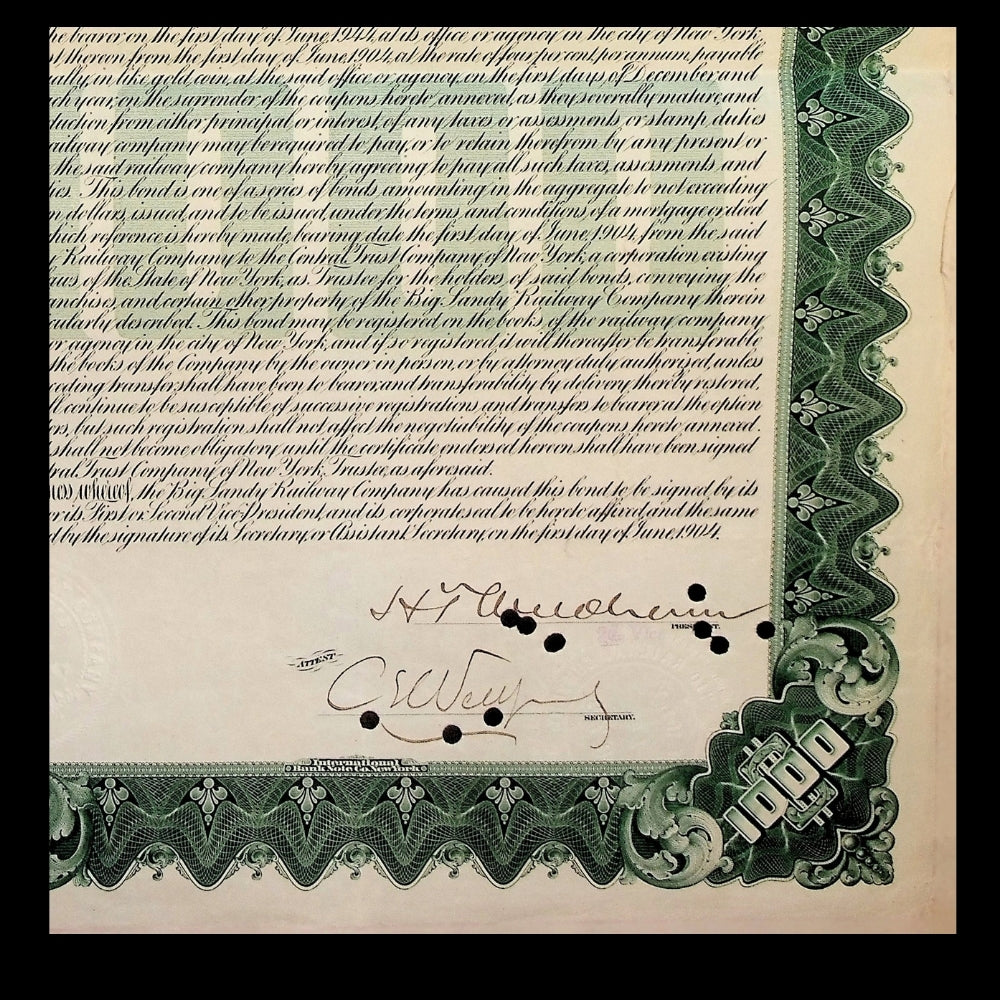 he bearer, on the first day of June, 1944, at its office or agency in the city of New York,
st thereon from the first day of June, 1904, at the rate of four per cent. per annum, payable
ually, in like gold coin, at the said office or agency, on the first days of December and
ch year, on the surrender of the coupons hereto annexed, as they severally mature, and
duction from either principal or interest, of any taxes or assessments or stamp duties
railway company may be required to pay, or to retain therefrom by any present or
the said railway company hereby agreeing to pay all such taxes, assessments and
ies. This bond is one of a series of bonds, amounting in the aggregate to not exceeding
n dollars, issued, and to be issued, under the terms and conditions of a mortgage or deed
hich reference is hereby made, bearing date the first day of June, 1904, from the said
y Railway Company to the Central Trust Company of New York, a corporation existing
aws of the State of New York, as Trustee for the holders of said bonds, conveying the
anchises, and certain other property of the Big Sandy Railway Company therein
cularly described. This bond may be registered on the books of the railway company
or agency in the city of New York, and if so registered it will thereafter be transferable
the books of the Company by the owner in person, or by attorney duly authorized, unless
ceding transfer shall have been to bearer, and transferability by delivery thereby restored,
ll continue to be susceptible of successive registrations and transfers to bearer at the option
ers, but such registration shall not affect the negotiability of the coupons hereto annexed.
shall not become obligatory until the certificate endorsed hereon shall have been signed
tral Trust Company of New York, Trustee, as aforesaid.
ness whereof, the Big Sandy Railway Company has caused this bond to be signed by its
or its First or Second Vice President, and its corporate seal to be hereto affixed, and the same
d by the signature of its Secretary, or Assistant Secretary, on the first day of June, 1904.
PRESIDENT.
ATTEST
SECRETARY.
International
Bank Note Co. New York
1000